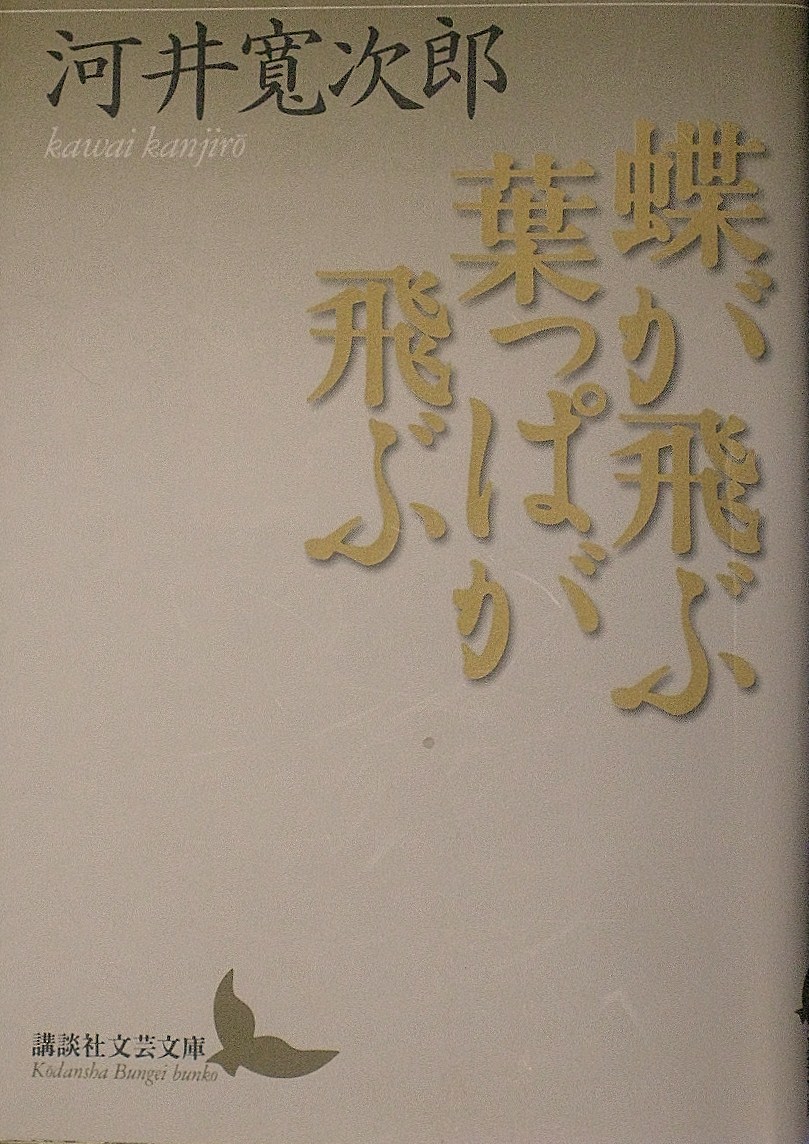 河井寬次郎
kawai kanjirō
蝶が飛ぶ
葉っぱが
飛ぶ
講談社文芸文庫
Kōdansha Bungei bunko